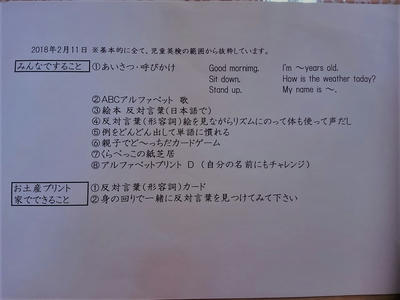 2018年2月11日 ※基本的に全て、児童英検の範囲から抜粋しています。
みんなですること ①あいさつ・呼びかけ Good mornimg. I'm ～years old.
Sit down. How is the weather today?
Stand up. My name is ～.
②ABCアルファベット 歌
③絵本 反対言葉(日本語で)
④反対言葉(形容詞)絵を見ながらリズムにのって体も使って声だし
⑤例をどんどん出して単語に慣れる
⑥親子でど～っちだカードゲーム
⑦くらべっこの紙芝居
⑧アルファベットプリント D (自分の名前にもチャレンジ)
お土産プリント ①反対言葉(形容詞)カード
家でできること ②身の回りで一緒に反対言葉を見つけてみて下さい